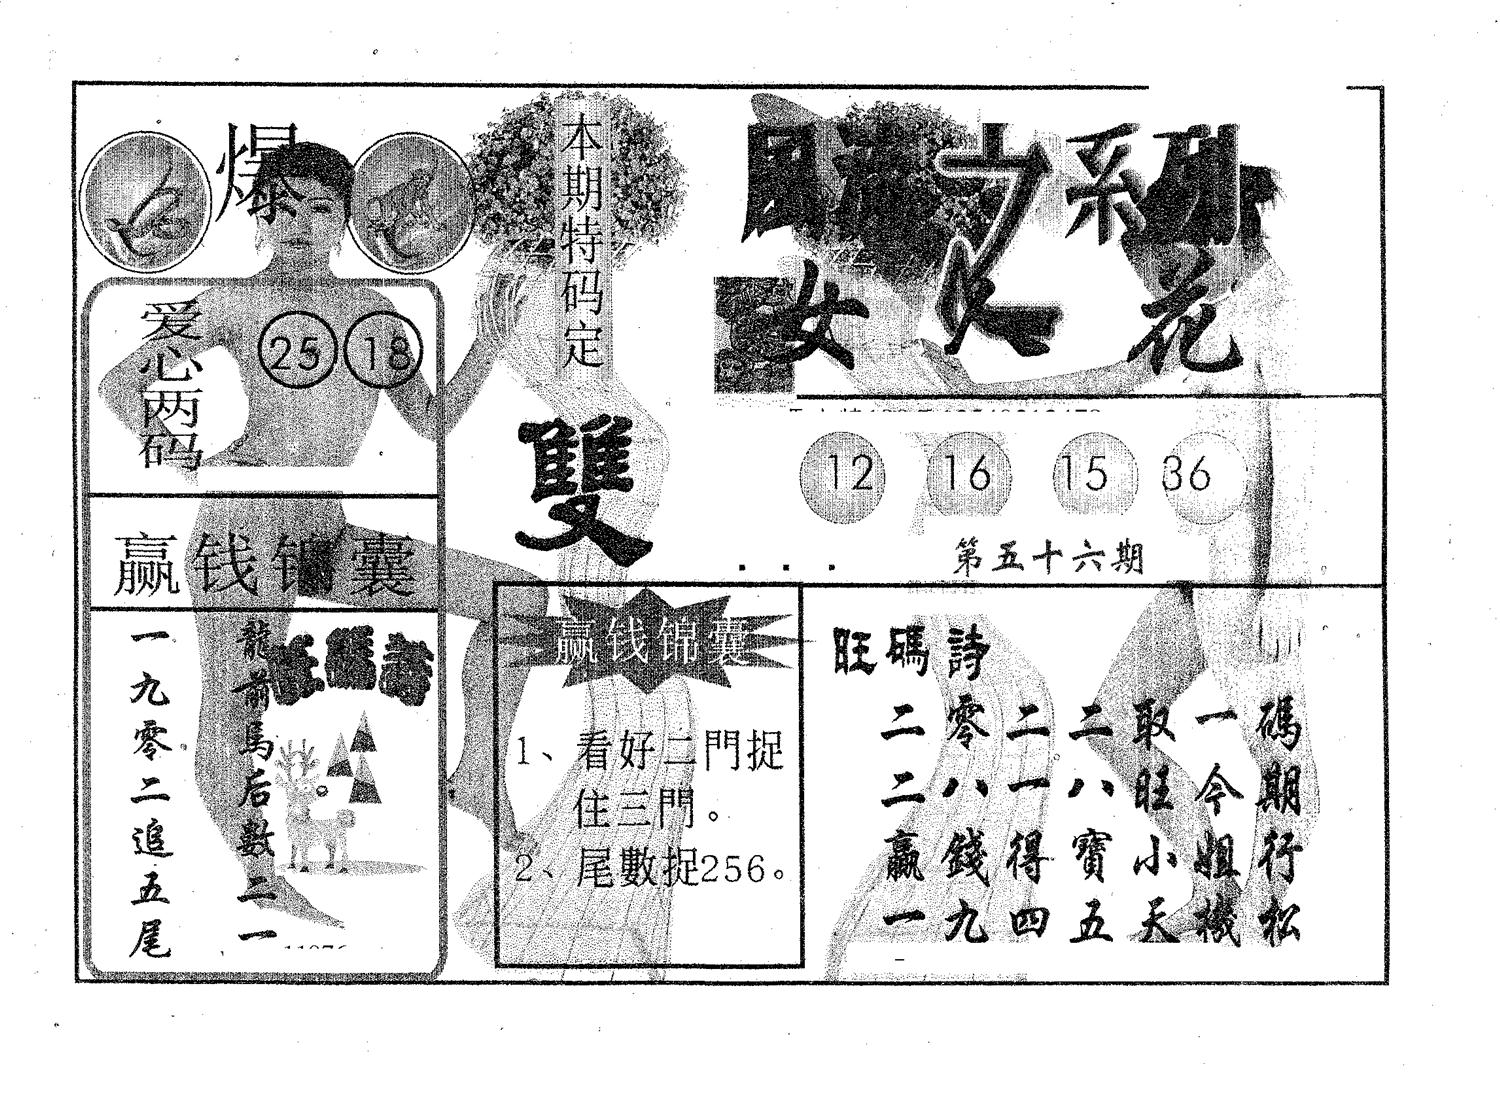 爆
爱心两码
25 18
赢钱锦囊
龍前馬后數二一
一九零二追五尾
旺碼詩
本期特码定
雙
赢钱锦囊
1、看好二門捉
住三門。
2、尾數捉256。
風流之系列
女人花
12 16 15 36
第五十六期
旺碼詩
二零二二取一碼
二八一八旺今期
贏錢得寶小姐行
一九四五天機松